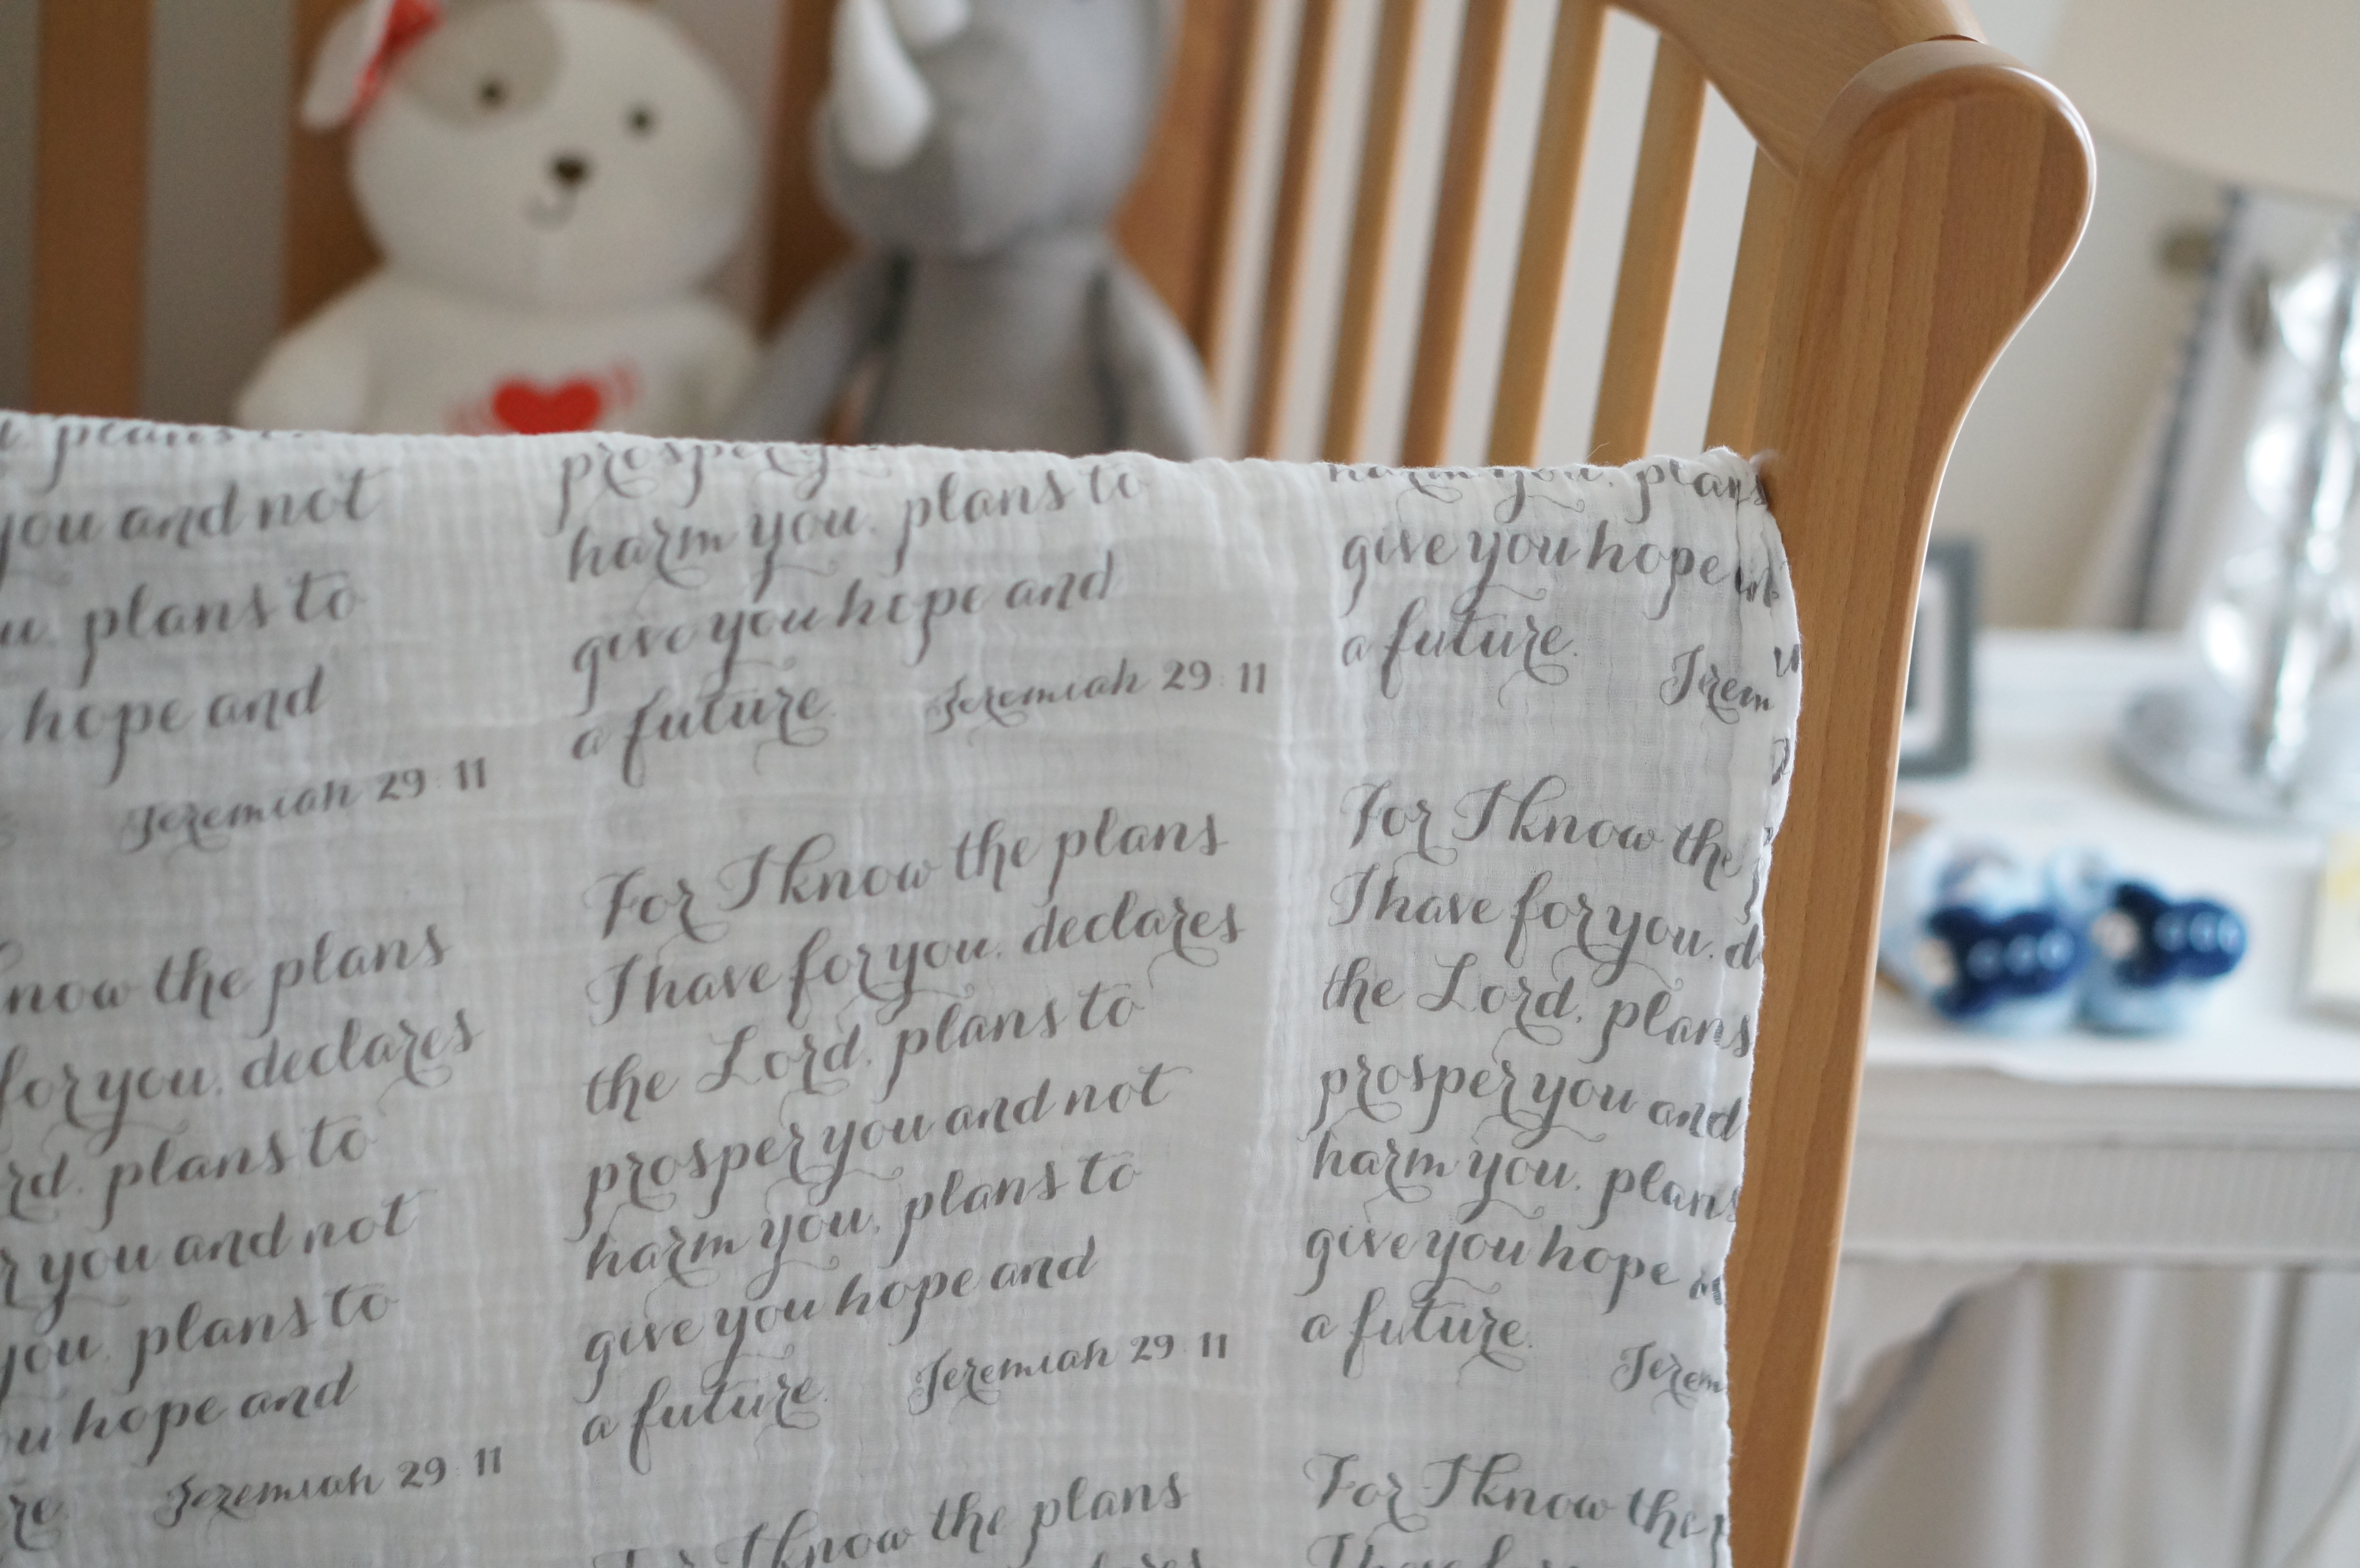 t. plans t
you and not
u. plans to
hope and
Jeremiah 29:11
now the plans
for you, declares
rd, plans to
r you and not
you, plans to
u hope and
re. Jeremiah 29:11
prosper y
harm you, plans to
give you hope and
a future. Jeremiah 29:11
For I know the plans
I have for you, declares
the Lord, plans to
prosper you and not
harm you, plans to
give you hope and
a future. Jeremiah 29:11
For I know the plans
harm you, plans
give you hope
a future. Jerem
For I know the
I have for you, d
the Lord, plans
prosper you and
harm you, plans
give you hope
a future. Jerem
For I know the p